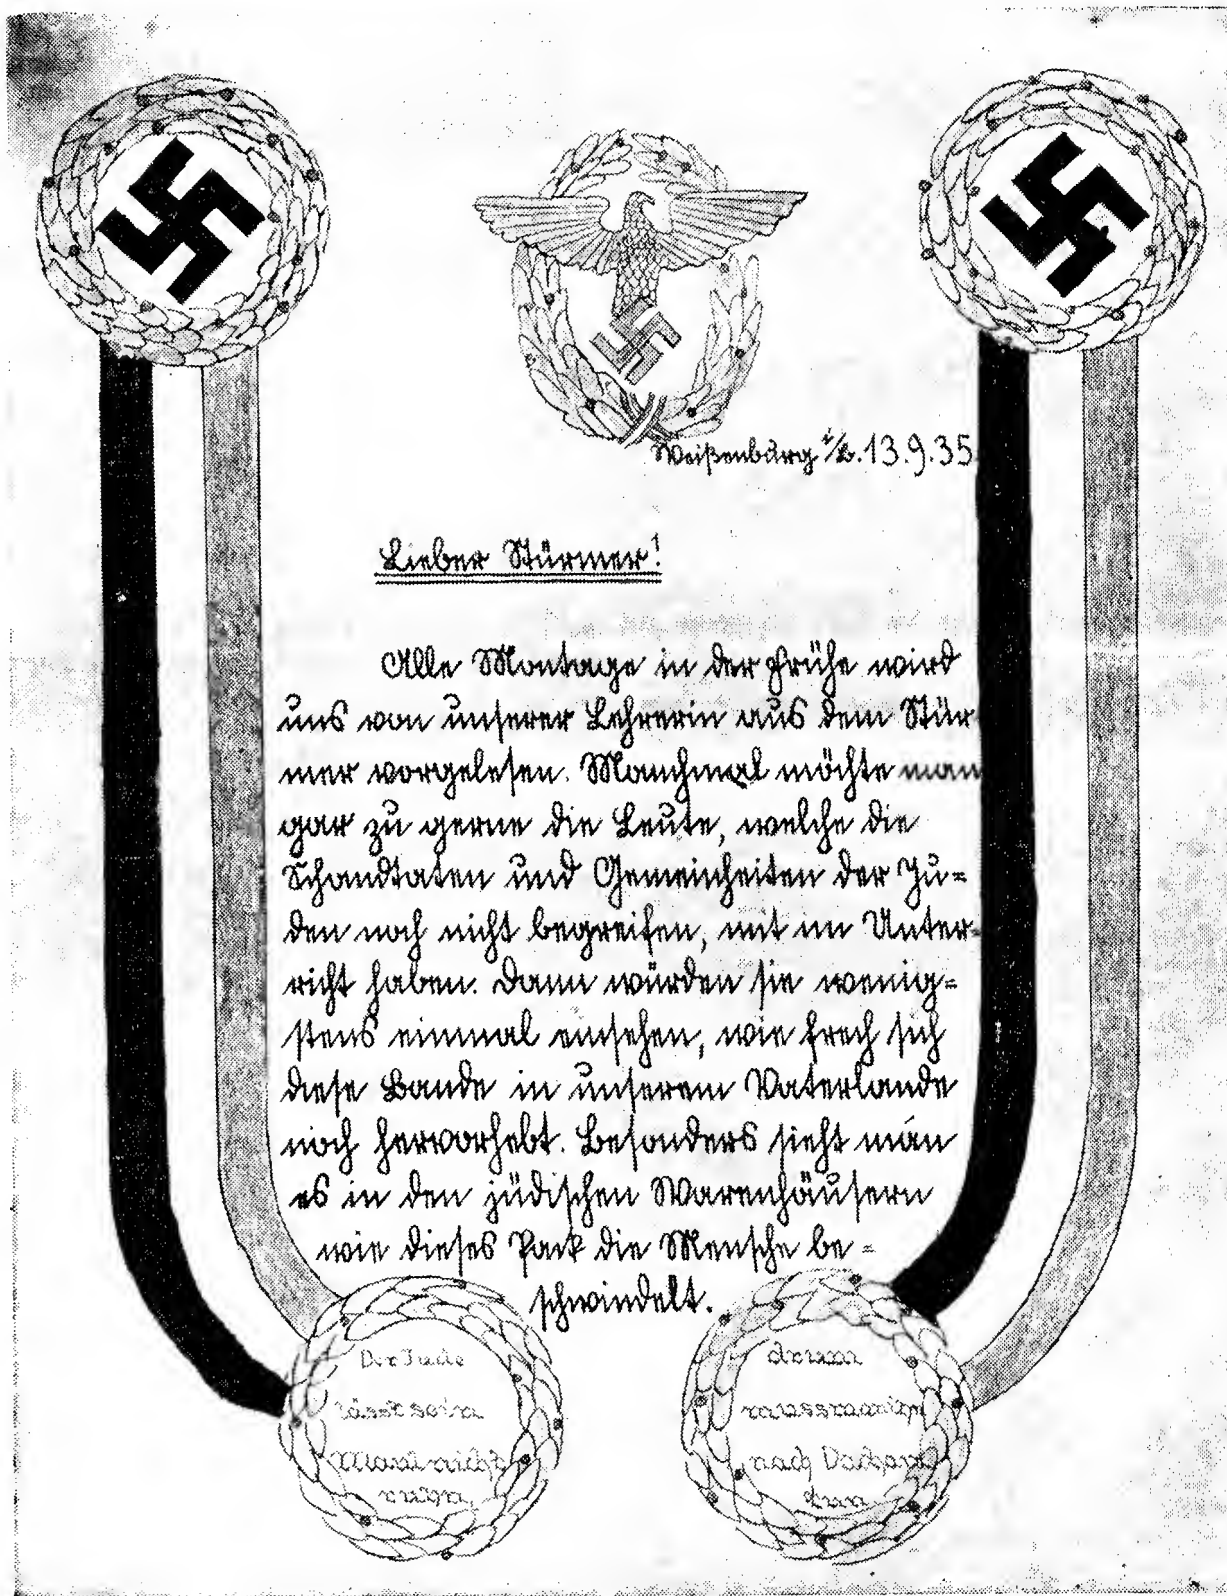 Weißenburg i/B. 13.9.35
Lieber Stürmer!
Alle Montage in der Frühe wird
uns von unserer Lehrerin aus dem Stür
mer vorgelesen. Manchmal möchte man
gar zu gerne die Leute, welche die
Schandtaten und Gemeinheiten der Ju-
den noch nicht begreifen, mit im Unter-
richt haben. Dann würden sie wenig-
stens einmal einsehen, wie frech sich
diese Bande in unserem Vaterlande
noch hervorhebt. Besonders sieht man
es in den jüdischen Warenhäusern
wie dieses Pack die Mensche be-
schwindelt.
Der Jude
lässt sein
Maul nicht
ruhn,
drum
muss man ihn
nach Dachau
tun